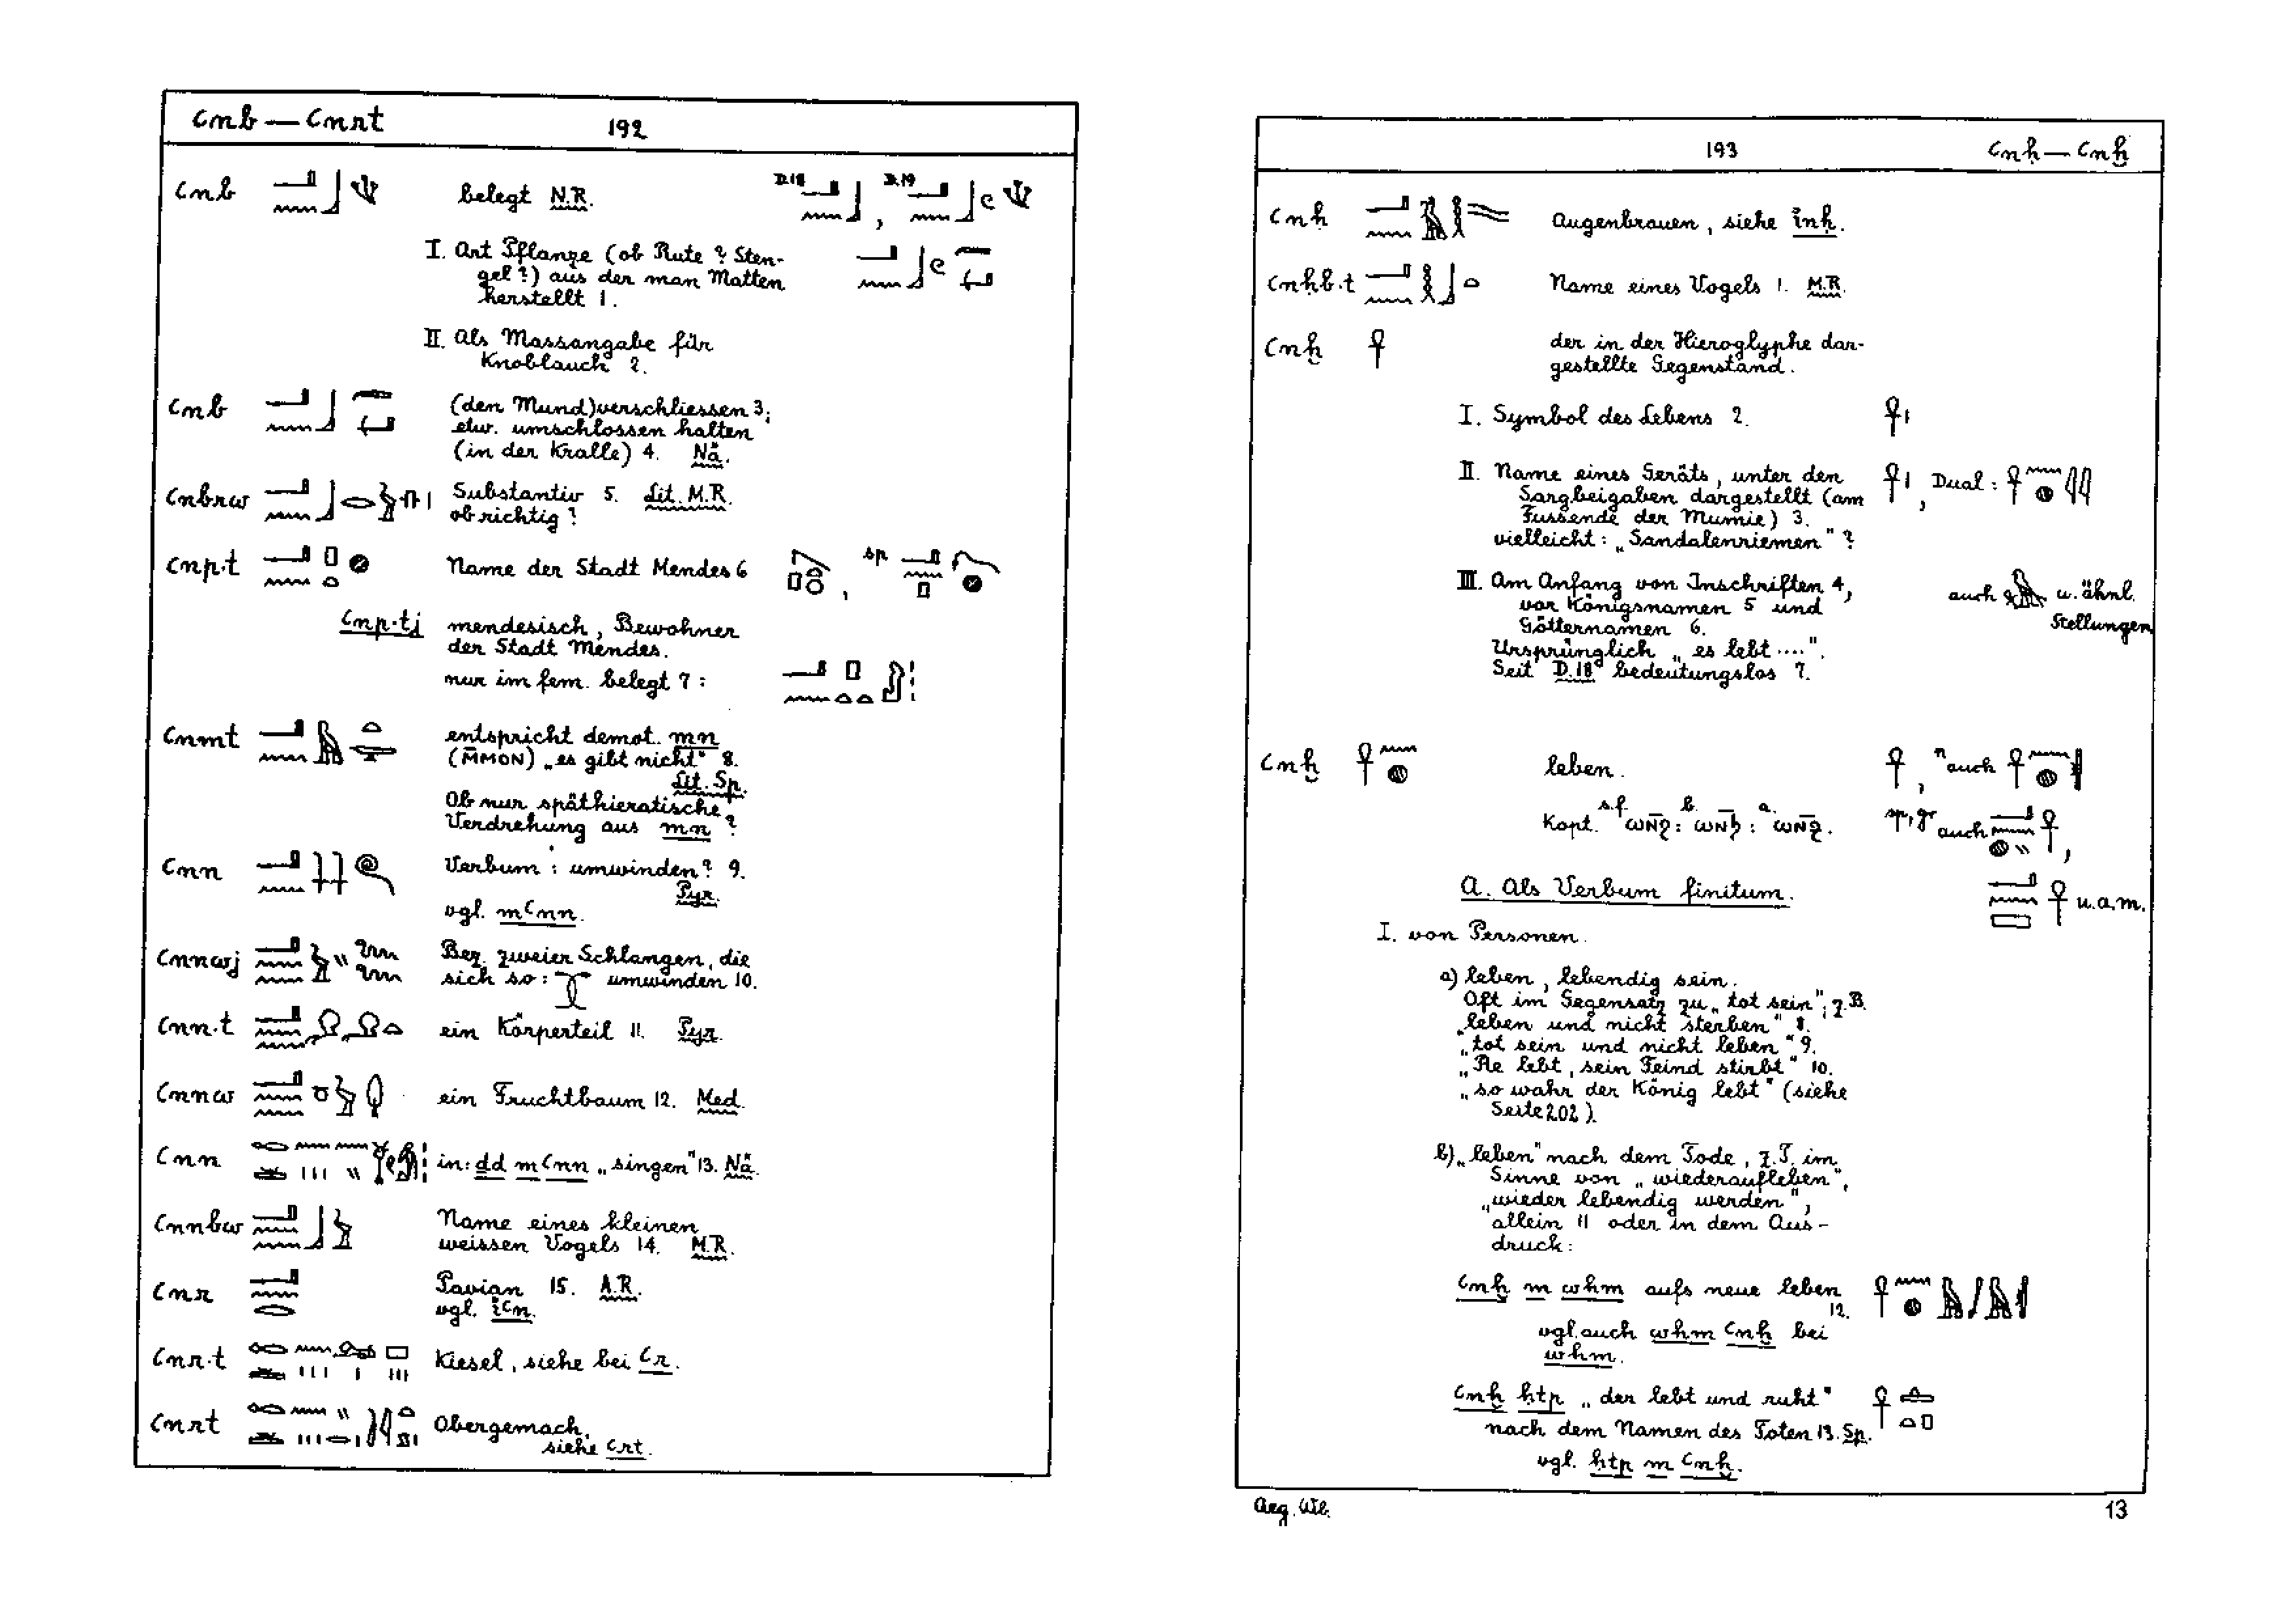 ꜥnb — ꜥnrt
192
ꜥnb belegt N.R. D.18 , D.19
I. Art Pflanze (ob Rute? Sten-
gel?) aus der man Matten
herstellt 1.
II. Als Massangabe für
Knoblauch 2.
ꜥnb (den Mund) verschliessen 3;
etw. umschlossen halten
(in der Kralle) 4. Nä.
ꜥnbrw Substantiv 5. Lit. M.R.
ob richtig?
ꜥnp.t Name der Stadt Mendes 6 , sp
ꜥnp.tj mendesisch, Bewohner
der Stadt Mendes.
nur im fem. belegt 7:
ꜥnmt entspricht demot. mn
(M̄MON) „es gibt nicht" 8.
Lit. Sp.
Ob nur späthieratische
Verdrehung aus mn?
ꜥnn Verbum: umwinden? 9.
Pyr.
vgl. mꜥnn.
ꜥnnwj Bez. zweier Schlangen, die
sich so: umwinden 10.
ꜥnn.t ein Körperteil 11. Pyr.
ꜥnnw ein Fruchtbaum 12. Med.
ꜥnn in: dd m ꜥnn „singen" 13. Nä.
ꜥnnbw Name eines kleinen
weissen Vogels 14. M.R.
ꜥnr Pavian 15. A.R.
vgl. iꜥn.
ꜥnr.t Kiesel, siehe bei ꜥr.
ꜥnrt Obergemach,
siehe ꜥrt.
193
ꜥnḥ — ꜥnḫ
ꜥnḥ Augenbrauen, siehe inḥ.
ꜥnḥb.t Name eines Vogels 1. M.R.
ꜥnḫ der in der Hieroglyphe dar-
gestellte Gegenstand.
I. Symbol des Lebens 2.
II. Name eines Geräts, unter den , Dual:
Sargbeigaben dargestellt (am
Fussende der Mumie) 3.
vielleicht: „Sandalenriemen"?
III. Am Anfang von Inschriften 4, auch u. ähnl.
vor Königsnamen 5 und Stellungen
Götternamen 6.
Ursprünglich „es lebt ...."
Seit D.18 bedeutungslos 7.
ꜥnḫ leben. , n auch
Kopt. s.f. ⲱⲛ̅ϩ : b. ⲱⲛ̅ϧ : a. ⲱⲛ̅ϩ. sp, gr auch ,
A. Als Verbum finitum. u.a.m.
I. von Personen.
a) leben, lebendig sein.
Oft im Gegensatz zu „tot sein"; z.B.
„leben und nicht sterben" 8.
„tot sein und nicht leben" 9.
„Re lebt, sein Feind stirbt" 10.
„so wahr der König lebt" (siehe
Seite 202).
b) „leben" nach dem Tode, z.T. im
Sinne von „wiederaufleben",
„wieder lebendig werden",
allein 11 oder in dem Aus-
druck:
ꜥnḫ m wḥm aufs neue leben
12.
vgl. auch wḥm ꜥnḫ bei
wḥm.
ꜥnḫ ḥtp „der lebt und ruht"
nach dem Namen des Toten 13. Sp.
vgl. ḥtp m ꜥnḫ.
Aeg. Wb.
13